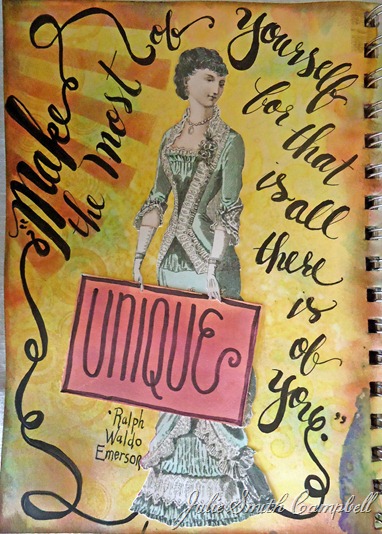 "Make
the most
of
yourself
for that
is all
there
is
of
you."
UNIQUE
·Ralph
Waldo
Emerson
Jolie Smith Campbell